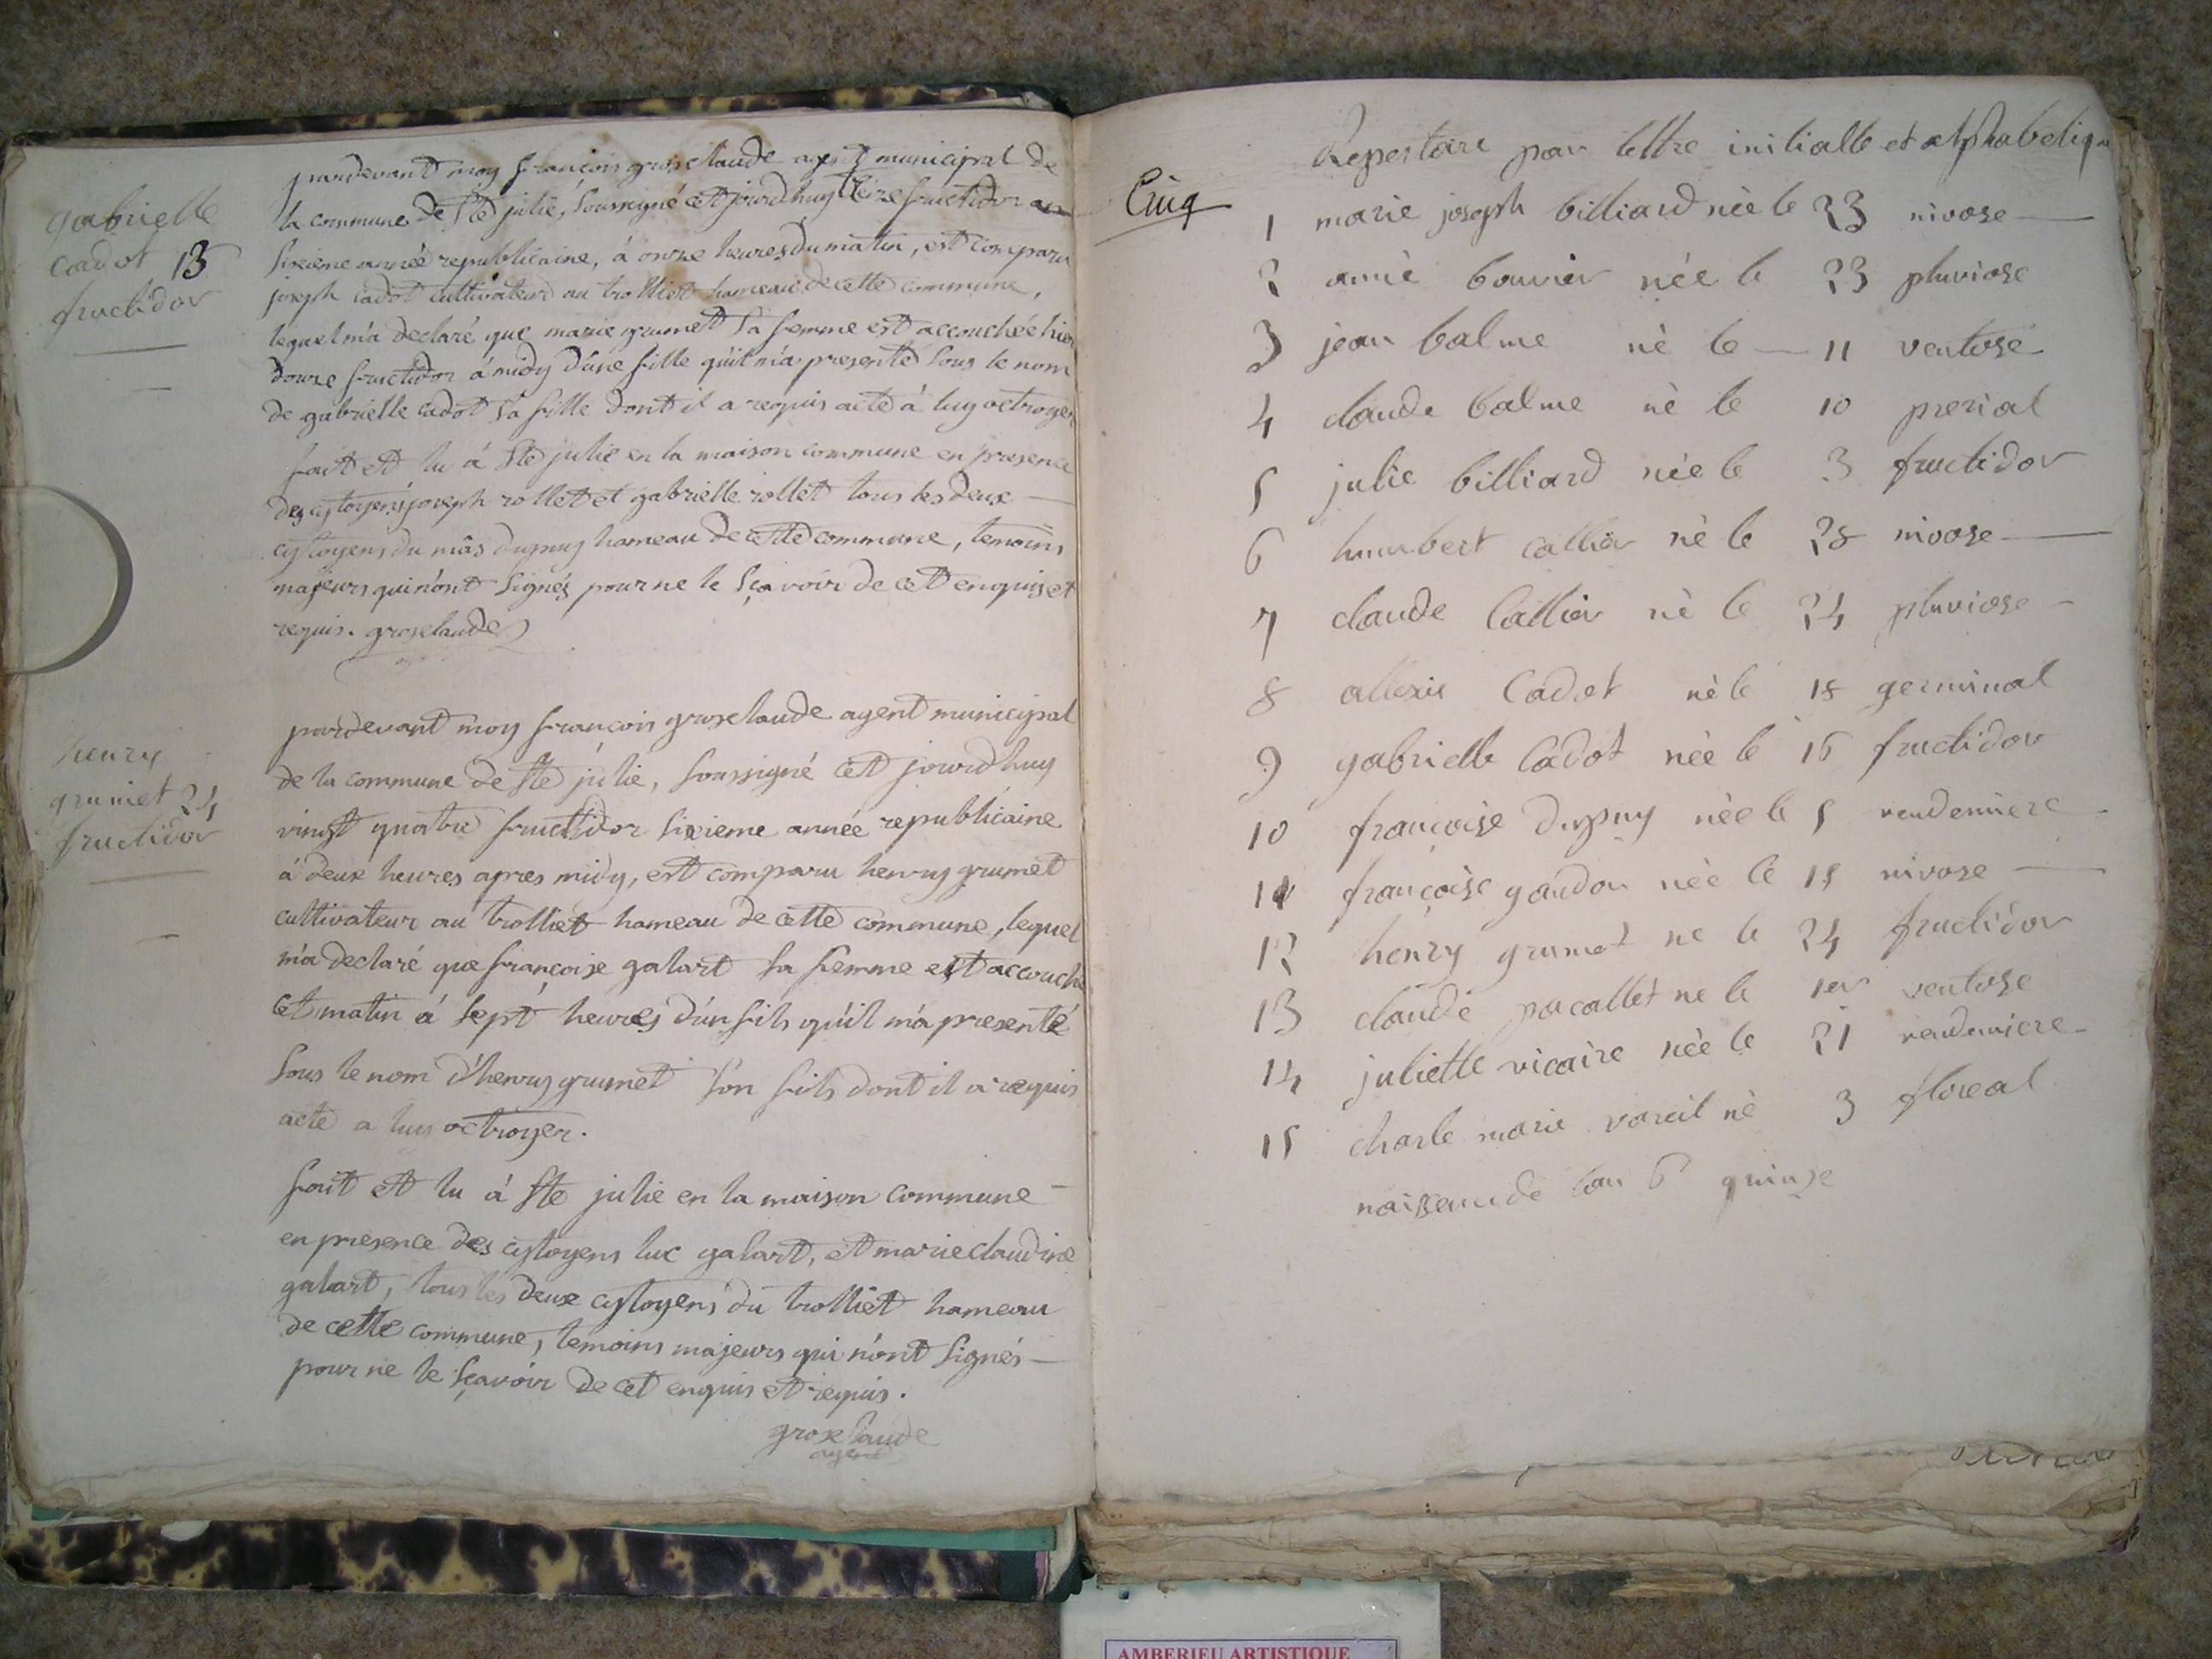 gabrielle
cadot 13
fructidor
pardevant moy françois groselaude agent municipal de
la commune de Ste julie, soussigné cet jourd'huy treize fructidor an
sixieme année republicaine, á onze heures du matin, est comparu
joseph cadot cultivateur au trolliet hameau de cette commune,
lequel m'a declaré que marie grumet sa femme est accouchée hier
douze fructidor á midy d'une fille qu'il m'a presenté sous le nom
de gabrielle cadot sa fille dont il a requis acte á luy octroyer
fait et lu á Ste julie en la maison commune en presence
des cytoyens joseph rollet et gabrielle rollet tous les deux
cytoyens du mâs dupuy hameau de cette commune, temoins
majeurs qui n'ont signés pour ne le sçavoir de cet enquis et
requis. groselaude
henry
grumet 24
fructidor
pardevant moy françois groselaude agent municipal
de la commune de Ste julie, soussigné cet jourd'huy
vingt quatre fructidor sixieme année republicaine
á deux heures apres midy, est comparu henry grumet
cultivateur au trolliet hameau de cette commune, lequel
m'a declaré que françoise galart sa femme est accouché
cet matin á sept heures d'un fils qu'il m'a presenté
sous le nom d'henry grumet son fils dont il a requis
acte a luy octroyer.
fait et lu á Ste julie en la maison commune
en presence des cytoyens luc galart, et marie claudine
galart, tous les deux cytoyens du trolliet hameau
de cette commune, temoins majeurs qui n'ont signés
pour ne le sçavoir de cet enquis et requis.
groselaude
agent
Repertoire par lettre initialle et alphabetiqu
Cinq
1 marie joseph billiard née le 23 nivose
2 amiè bouvier née le 23 pluviose
3 jean balme nè le 11 ventose
4 claude balme nè le 10 prerial
5 julie billiard née le 3 fructidor
6 humbert callier nè le 28 nivose
7 claude Callier nè le 24 pluviose
8 allexis Cadet nè le 18 germinal
9 gabrielle Cadot née le 15 fructidor
10 françoise dupuy née le 5 vendemiere
11 françoise gaudon née le 15 nivose
12 henry grumet ne le 24 fructidor
13 claude pacallet ne le 1er ventose
14 juliette vicaire née le 21 vendemiere
15 charle marie vareil nè 3 floreal
naissance de lan 6 quinze
AMBERIEU ARTISTIQUE